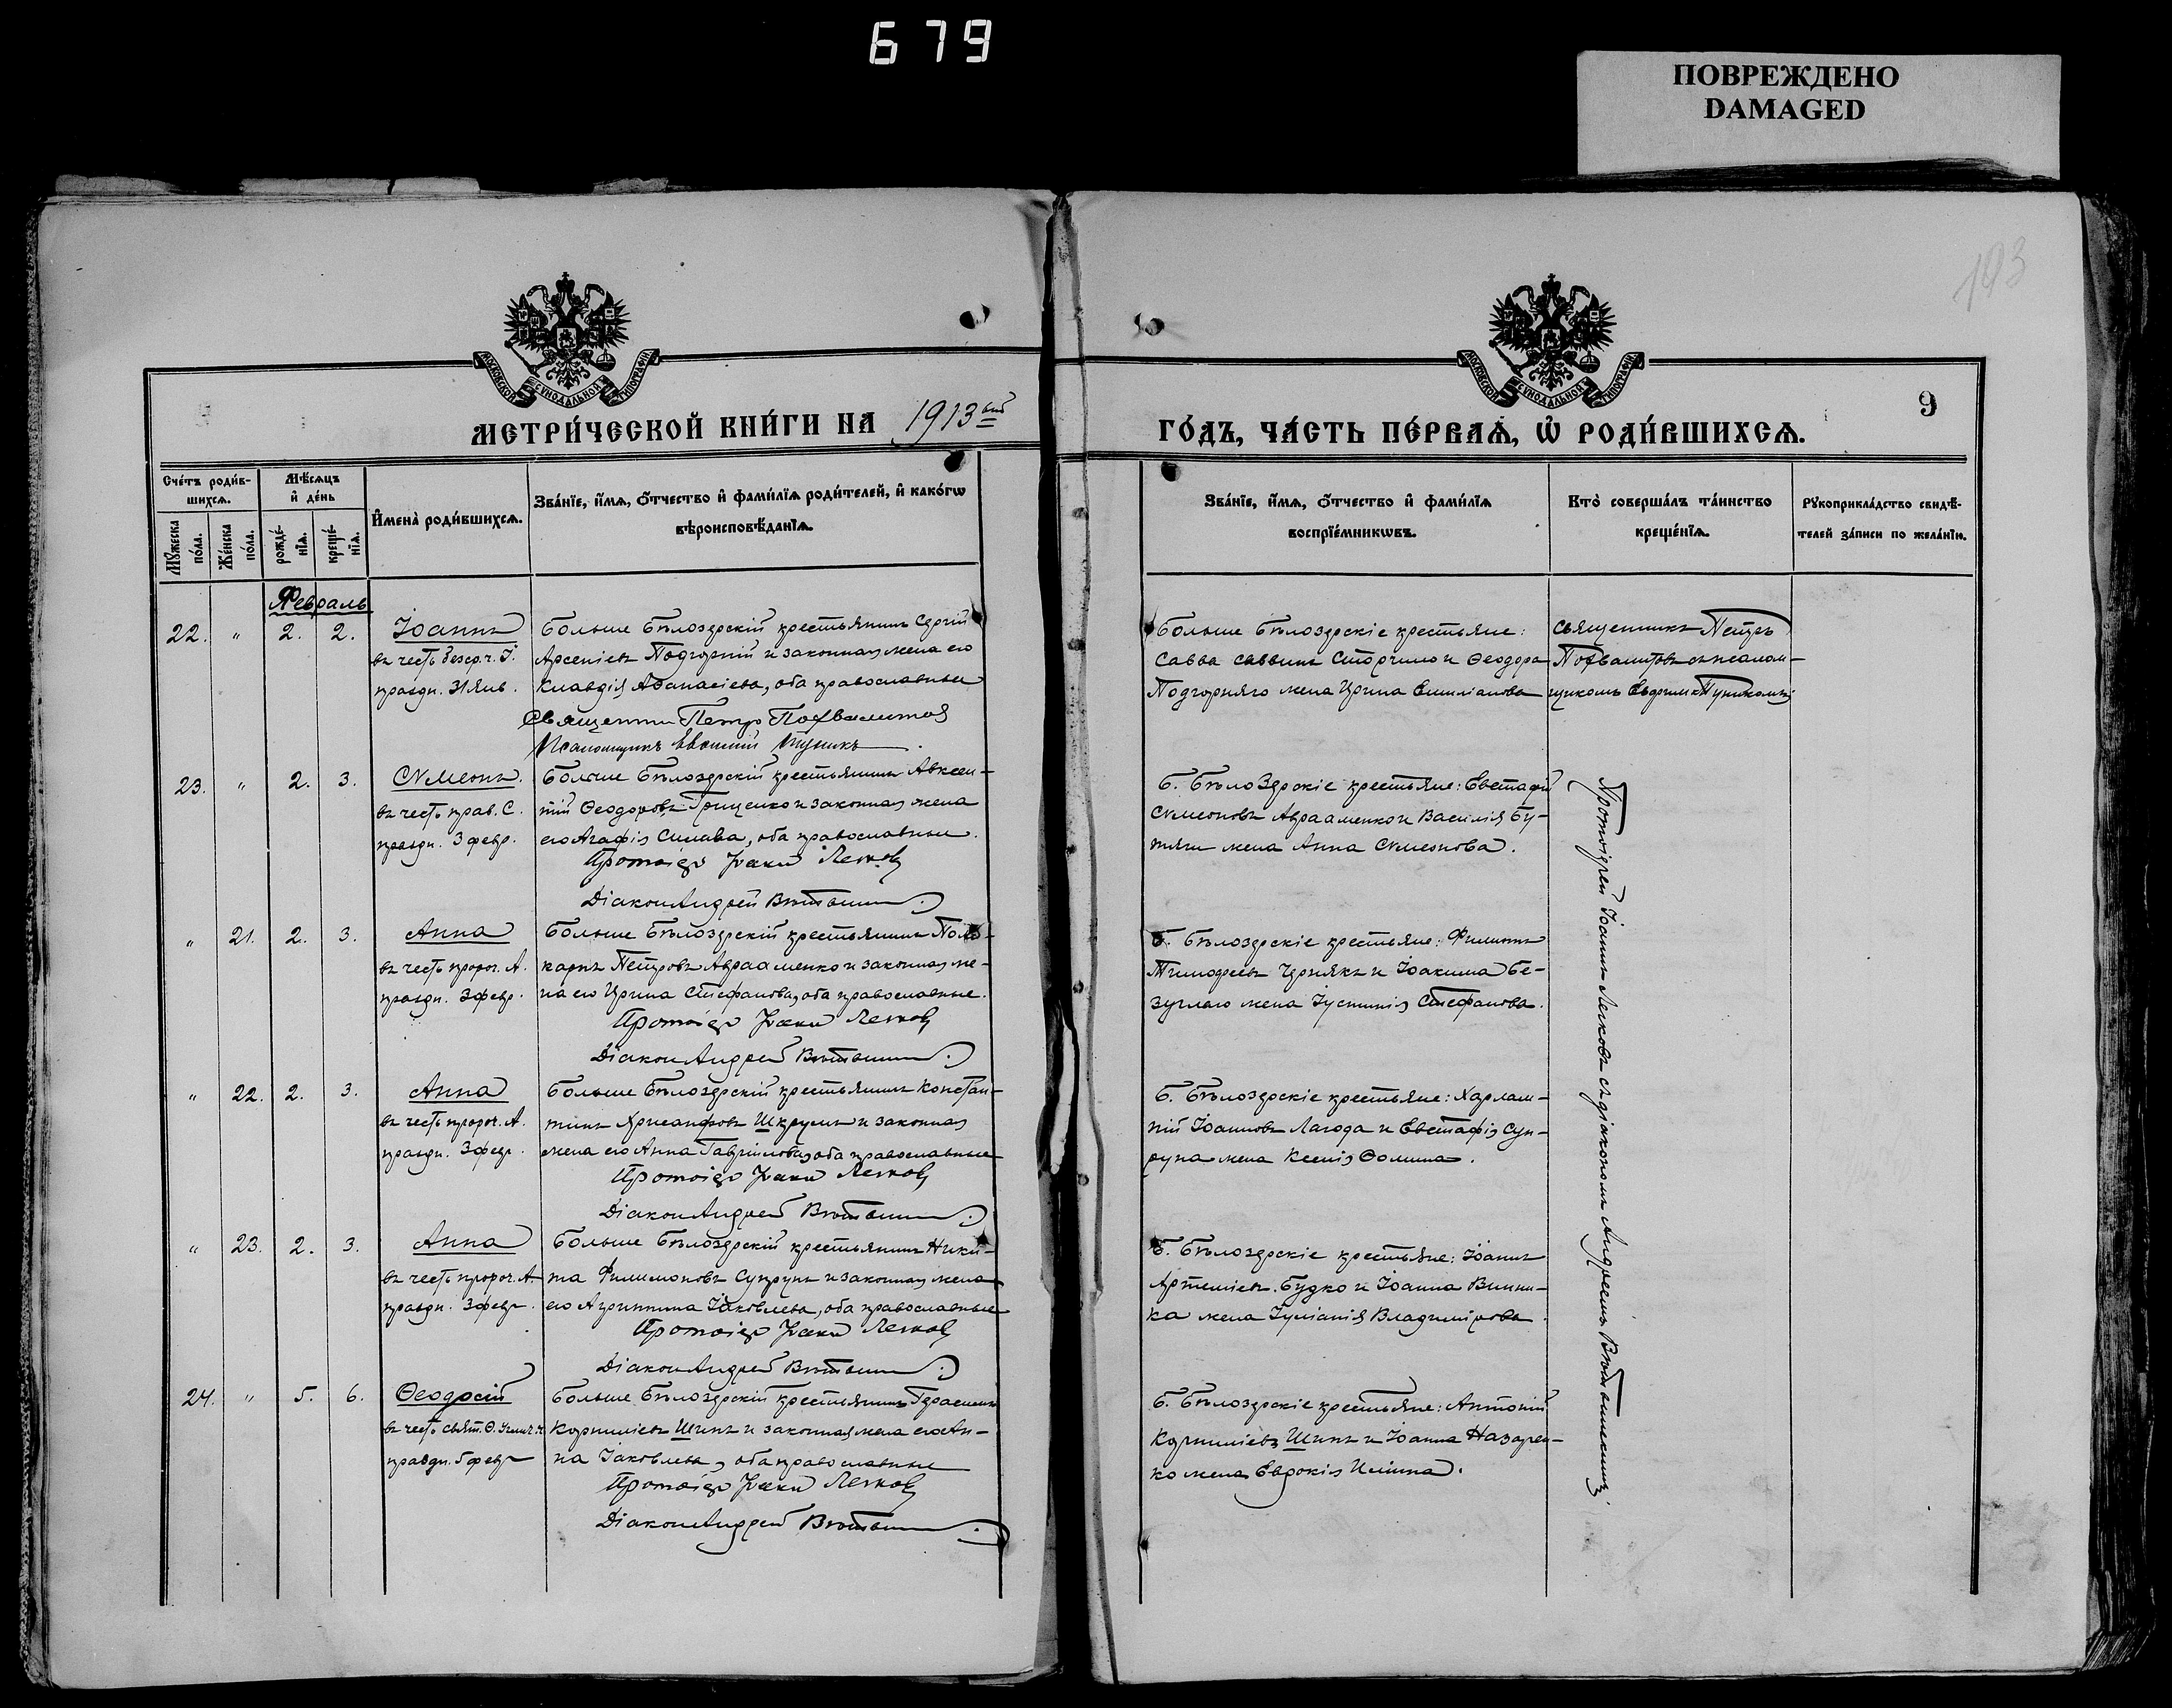 679
ПОВРЕЖДЕНО
DAMAGED
193
МОСКОВСКОЙ СУНОДАЛЬНОЙ ТИПОГРАФІИ
МОСКОВСКОЙ СУНОДАЛЬНОЙ ТИПОГРАФІИ
9
МЕТРИ́ЧЕСКОЙ КНИ́ГИ НА 1913ый
ГО́ДЪ, ЧА́СТЬ ПЕ́РВАѦ, Ѡ҆ РОДИ́ВШИХСѦ.
Сче́тъ роди́в-
шихсѧ.
Мѣ́сѧцъ
и҆ де́нь
Мꙋ́жеска по́ла.
Же́нска по́ла.
рожде́-
нїѧ.
креще́-
нїѧ.
И҆мена̀ роди́вшихсѧ.
Зва́нїе, и҆́мѧ, ѻ҆́тчество и҆ фами́лїѧ роди́телей, и҆ како́гѡ
вѣроисповѣ́данїѧ.
Зва́нїе, и҆́мѧ, ѻ҆́тчество и҆ фами́лїѧ
воспрїе́мникѡвъ.
Кто̀ соверша́лъ та́инство
креще́нїѧ.
Рꙋкоприкла́дство свидѣ́-
телей за́писи по жела́нїю.
Февраль
22. " 2. 2. Іоаннъ
въ честь безср. ч. І.
праздн. 31 Янв.
Больше Бѣлозерскій крестьянинъ Сергій
Арсеніевъ Подгорній и законная жена его
Клавдія Аѳанасіева, оба православные
Священникъ Петръ
Псаломщикъ Евѳимій Пуникъ
Больше Бѣлозерскіе крестьяне:
Савва Саввинъ Сторчило и Ѳеодора
Подгорняго жена Ирина Емиліанова
Священникъ Петръ
съ псалом-
щикомъ
23. " 2. 3. Сѵмеонъ.
въ честь прав. С.
праздн. 3 февр.
Больше Бѣлозерскій крестьянинъ Авксен-
тій Ѳеодоровъ Гриценко и законная жена
его Агафія Силина, оба православные.
Протоіер Іоаннъ Легков
Діаконъ Андрей
Б. Бѣлозерскіе крестьяне: Евстафій
Сѵмеоновъ Авраменко и Василія Бу-
тяги жена Анна Сѵмеонова.
Протоіерей Іоаннъ Легковъ съ діакономъ Андреемъ
" 21. 2. 3. Анна
въ честь пророч. А.
праздн. 3 февр.
Больше Бѣлозерскій крестьянинъ Поли-
карпъ Петровъ Авраменко и законная же-
на его Ирина Стефанова, оба православные.
Протоіер Іоаннъ Легков
Діаконъ Андрей
Б. Бѣлозерскіе крестьяне: Филиппъ
Тимофеевъ Чернякъ и Іоакима Бе-
зуглаго жена Іустинія Стефанова.
" 22. 2. 3. Анна
въ честь пророч. А.
праздн. 3 февр.
Больше Бѣлозерскій крестьянинъ Констан-
тинъ Хрисанфовъ Шкрумъ и законная
жена его Анна Гавріилова, оба православные
Протоіер Іоаннъ Легков
Діаконъ Андрей
Б. Бѣлозерскіе крестьяне: Харлам-
пій Іоанновъ Лагода и Евстафія Суп-
руна жена Ксенія Ѳомина.
" 23. 2. 3. Анна
въ честь пророч. А.
праздн. 3 февр.
Больше Бѣлозерскій крестьянинъ Ники-
та Филимоновъ Супрунъ и законная жена
его Агриппина Іаковлева, оба православные
Протоіер Іоаннъ Легков
Діаконъ Андрей
Б. Бѣлозерскіе крестьяне: Іоаннъ
Артеміевъ Будко и Іоанна Винни-
ка жена Іуліанія Владимірова.
24. " 5. 6. Ѳеодосій
въ честь свят. Ѳ.
праздн. 5 февр
Больше Бѣлозерскій крестьянинъ Герасимъ
Корниліевъ Шипъ и законная жена его Ан-
на Іаковлева, оба православные
Протоіер Іоаннъ Легков
Діаконъ Андрей
Б. Бѣлозерскіе крестьяне: Антоній
Корниліевъ Шипъ и Іоанна Назарен-
ко жена Евдокія Иліина.